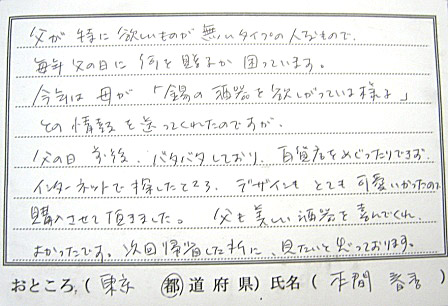 父が特に欲しいものが無いタイプの人なもので、
毎年父の日に何を贈るか困っています。
今年は母が「錫の酒器を欲しがっている様子」
との情報を送ってくれたのですが、
父の日前後、バタバタしており、百貨店をめぐったりできず、
インターネットで探したところ、デザインもとても可愛いかったので
購入させて頂きました。父も美しい酒器を喜んでくれ、
よかったです。次回帰省した折に、見たいと思っております。
おところ（東京 都道府県）氏名（本間